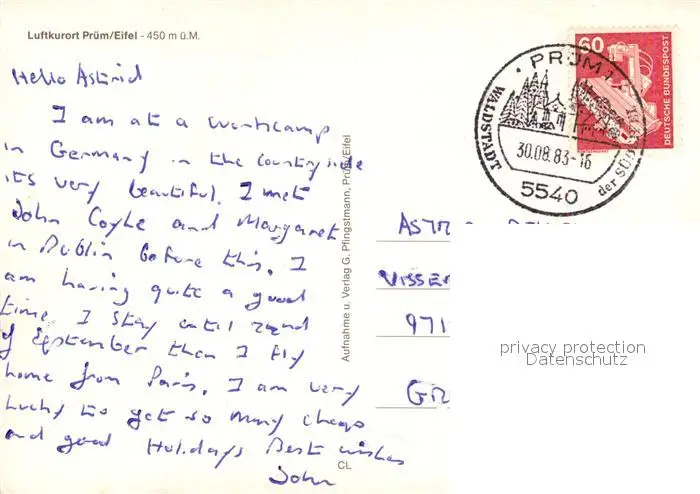 Luftkurort Prüm/Eifel - 450 m ü.M.
Hello Astrid
I am at a workcamp
in Germany in the countryside
its very beautiful. I met
John Coyle and Margaret
in Dublin before this. I
am having quite a good
time. I stay until 22nd
of September then I fly
home from Paris. I am very
lucky to get so many cheap
and good Holidays Best wishes
John
CL
Aufnahme u. Verlag G. Pfingstmann, Prüm/Eifel
60
DEUTSCHE BUNDESPOST
PRÜM 1
WALDSTADT
der
30.08.83-16
5540
VISSE
971
GR
privacy protection
Datenschutz